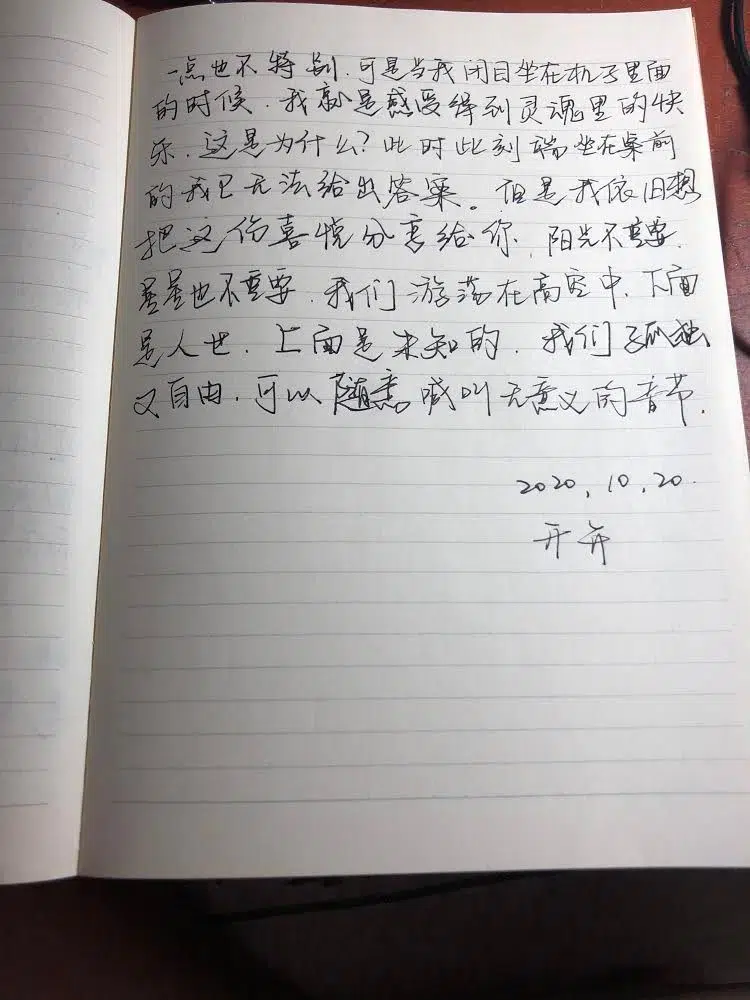 一点也不特别.可是当我闭目坐在机子里面
的时候.我就是感受得到灵魂里的快
乐.这是为什么?此时此刻端坐在桌前
的我已无法给出答案。但是我依旧想
把这份喜悦分享给你,阳光不重要.
星星也不重要.我们游荡在高空中.下面
是人世.上面是未知的.我们孤独
又自由.可以随意喊叫无意义的音节.
2020.10.20.